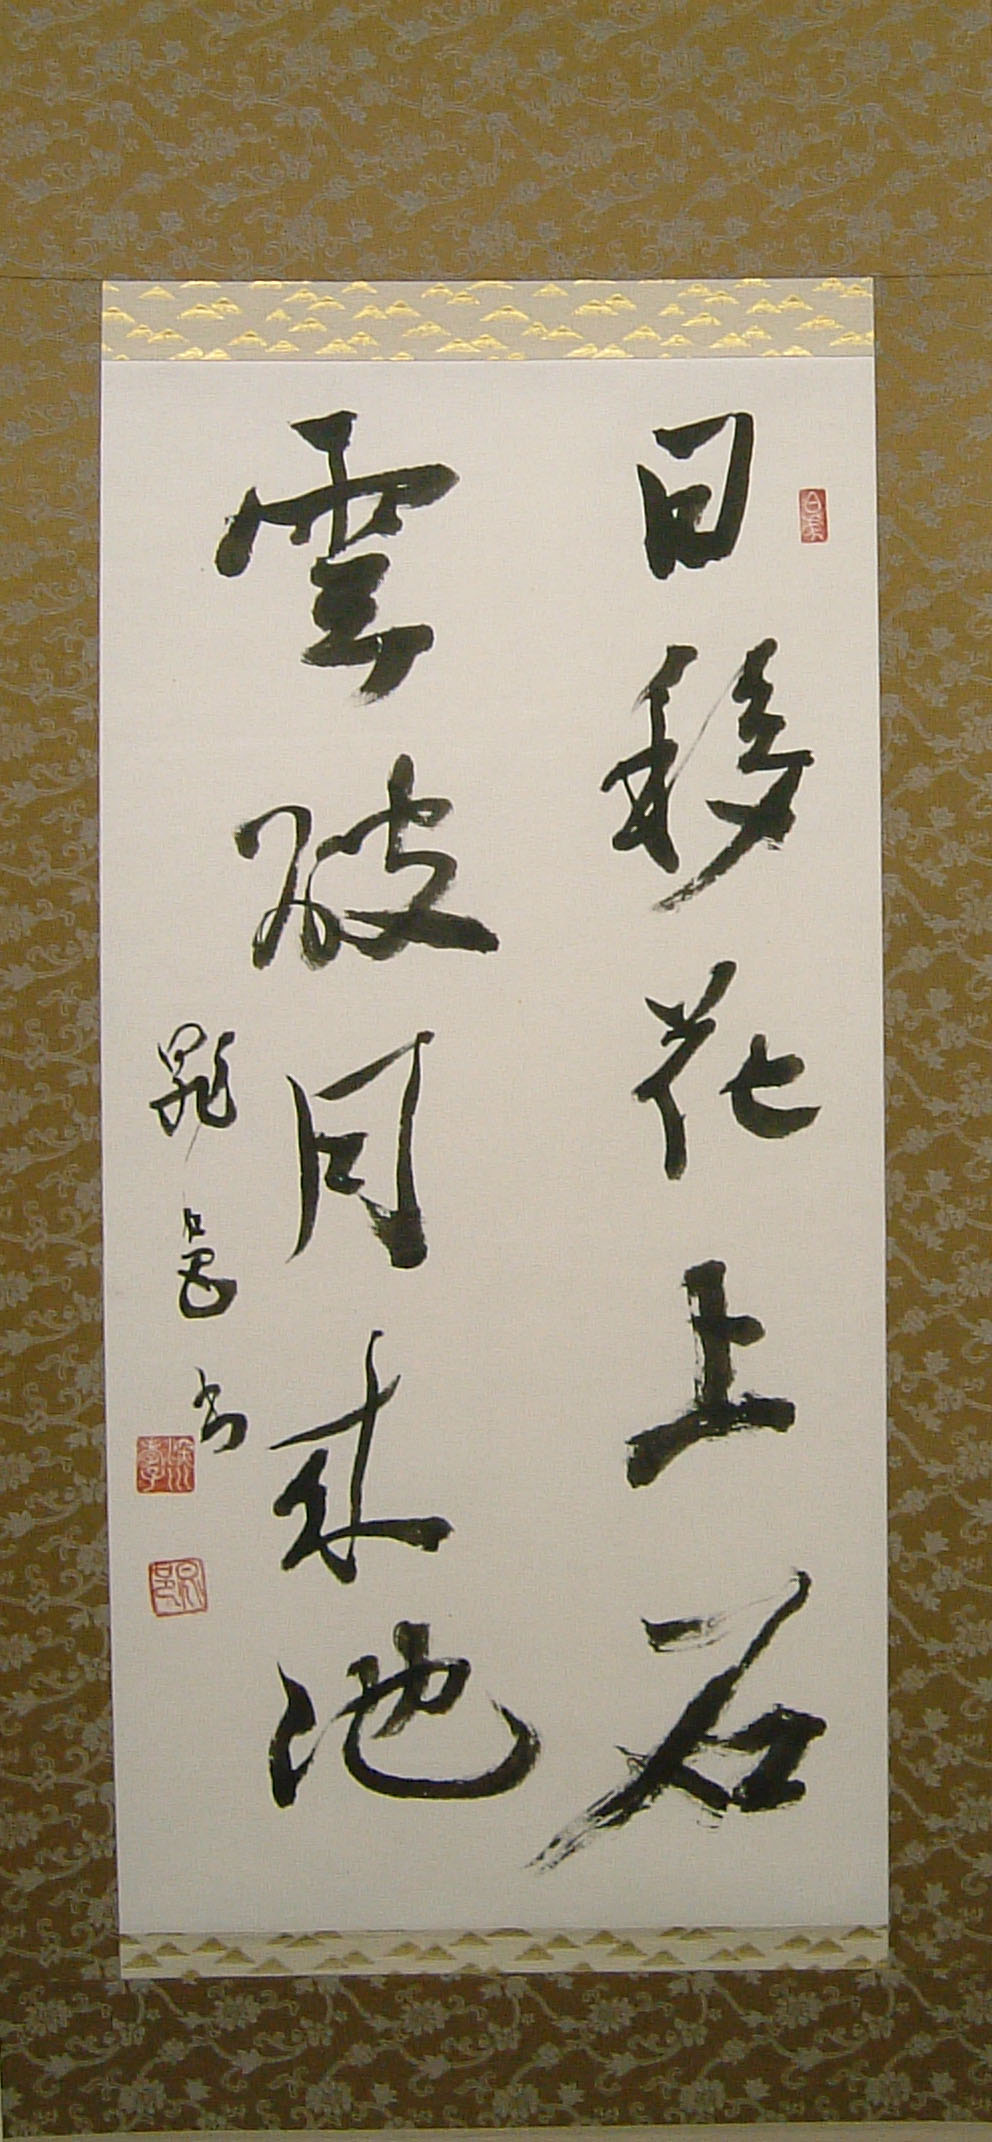 日移花上石
雲破月来池
書